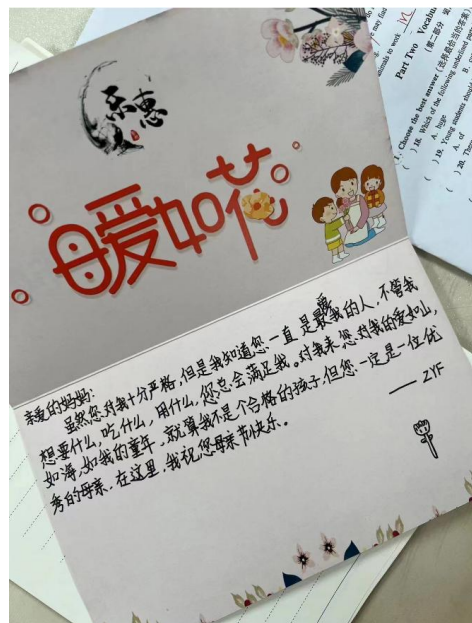 乐惠
母爱如花
亲爱的妈妈:
虽然您对我十分严格,但是我知道您一直是最爱我的人,不管我
想要什么,吃什么,用什么,您总会满足我。对我来您对我的爱如山,
如海,如我的童年,就算我不是个合格的孩子,但您一定是一位优
秀的母亲,在这里,我祝您母亲节快乐。
—— ZYF
animals to work
Part Two Vocabu
(第二部分
Choose the best answer (选择最恰当的答案)
( ) 18. Which of the following underlined
A. huge
( ) 19. Young students should
A. of
( ) 20. The